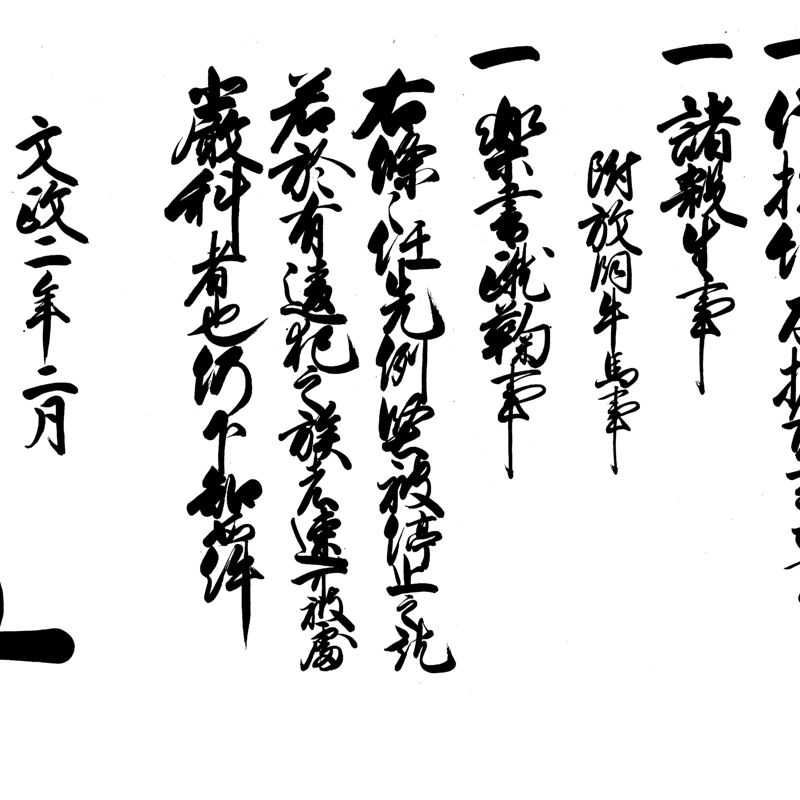 一
一 諸殺生事
附放飼牛馬事
一 楽書蹴鞠事
右條々任先例堅被停止之訖
若於有違犯之族者速可被處
嚴科者也仍下知如件
文政二年二月